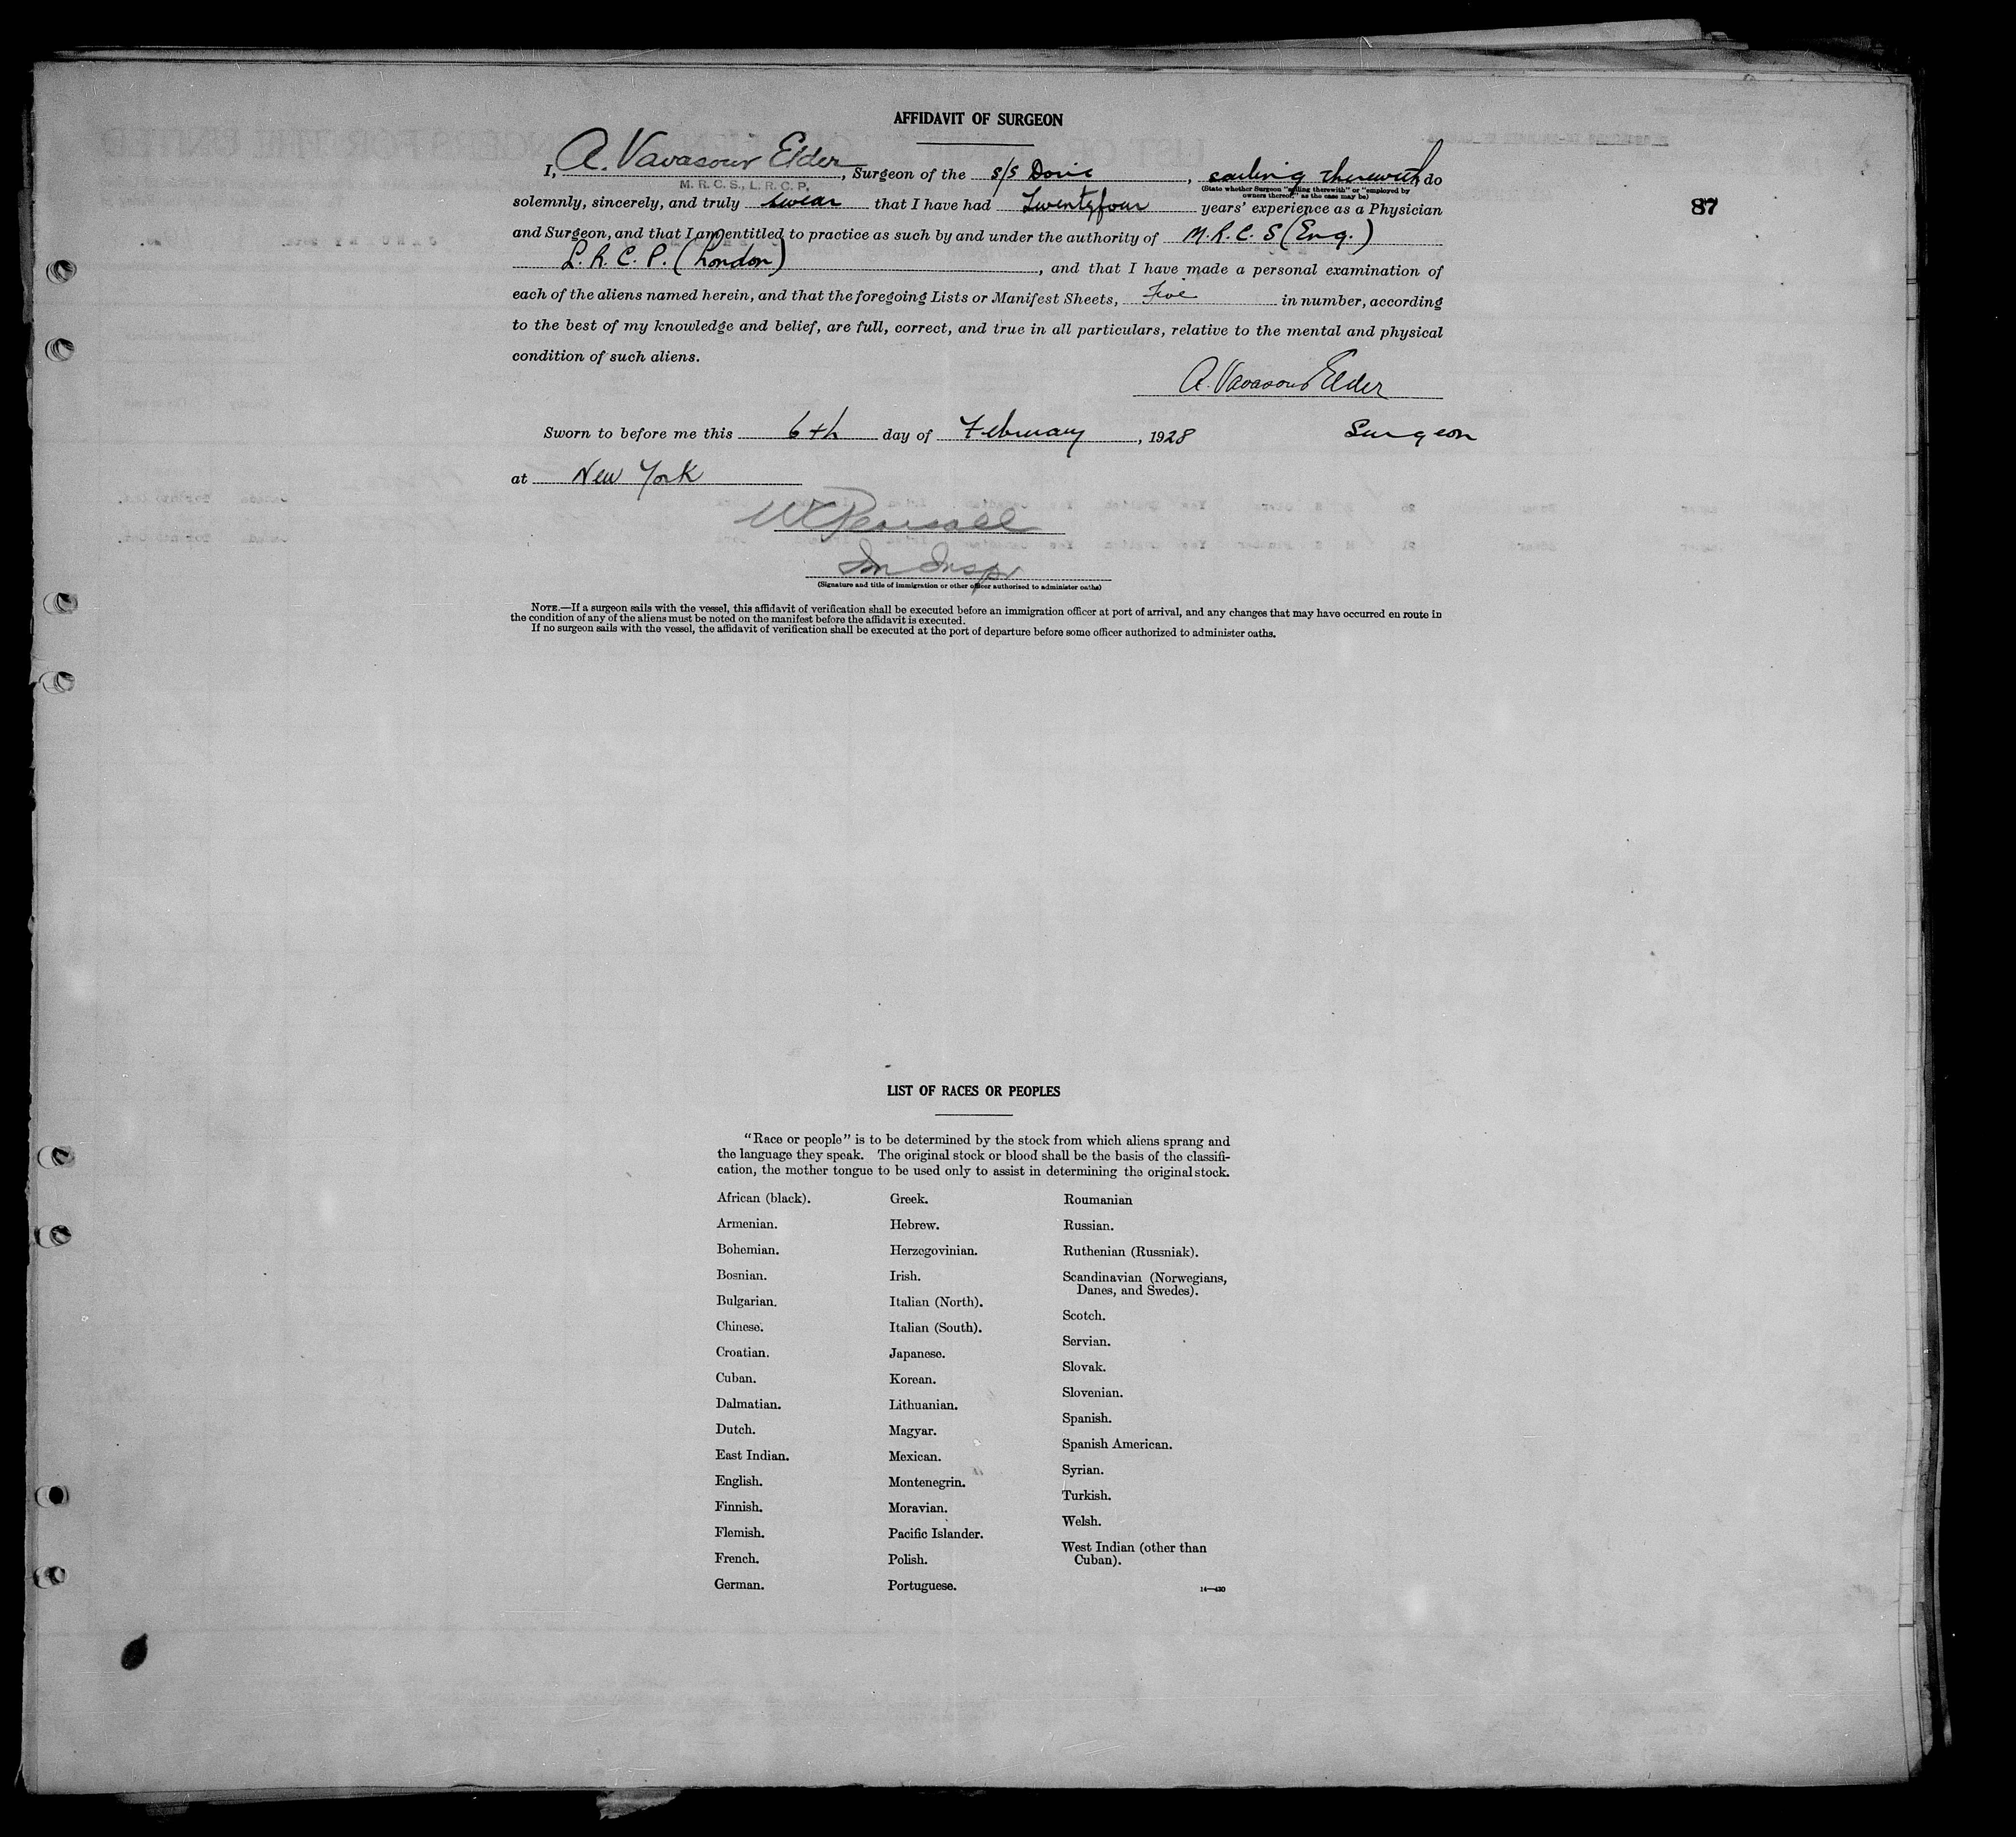 AFFIDAVIT OF SURGEON
I, A. Vavasour Elder, Surgeon of the s/s Doric, sailing therewith, do
M. R. C. S., L. R. C. P.
(State whether Surgeon "sailing therewith" or "employed by
owners thereof," as the case may be)
solemnly, sincerely, and truly swear that I have had Twentyfour years' experience as a Physician
87
and Surgeon, and that I am entitled to practice as such by and under the authority of M.R.C.S (Eng.)
L.R.C.P. (London), and that I have made a personal examination of
each of the aliens named herein, and that the foregoing Lists or Manifest Sheets, Five in number, according
to the best of my knowledge and belief, are full, correct, and true in all particulars, relative to the mental and physical
condition of such aliens.
A. Vavasour Elder
Sworn to before me this 6th day of February, 1928 Surgeon
at New York
Imm Inspr
(Signature and title of immigration or other officer authorized to administer oaths)
NOTE.—If a surgeon sails with the vessel, this affidavit of verification shall be executed before an immigration officer at port of arrival, and any changes that may have occurred en route in
the condition of any of the aliens must be noted on the manifest before the affidavit is executed.
If no surgeon sails with the vessel, the affidavit of verification shall be executed at the port of departure before some officer authorized to administer oaths.
LIST OF RACES OR PEOPLES
"Race or people" is to be determined by the stock from which aliens sprang and
the language they speak. The original stock or blood shall be the basis of the classifi-
cation, the mother tongue to be used only to assist in determining the original stock.
African (black).
Armenian.
Bohemian.
Bosnian.
Bulgarian.
Chinese.
Croatian.
Cuban.
Dalmatian.
Dutch.
East Indian.
English.
Finnish.
Flemish.
French.
German.
Greek.
Hebrew.
Herzegovinian.
Irish.
Italian (North).
Italian (South).
Japanese.
Korean.
Lithuanian.
Magyar.
Mexican.
Montenegrin.
Moravian.
Pacific Islander.
Polish.
Portuguese.
Roumanian
Russian.
Ruthenian (Russniak).
Scandinavian (Norwegians,
Danes, and Swedes).
Scotch.
Servian.
Slovak.
Slovenian.
Spanish.
Spanish American.
Syrian.
Turkish.
Welsh.
West Indian (other than
Cuban).
14—430